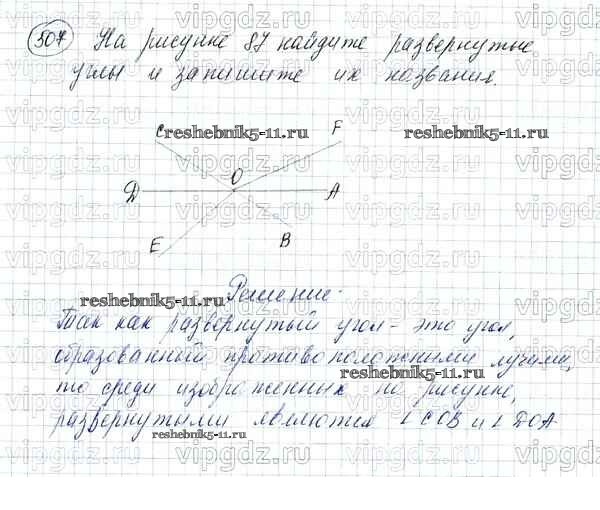 507 На рисунке 87 найдите развернутые
углы и запишите их названия.
C
F
O
D
A
E
B
Решение.
Так как развернутый угол - это угол,
образованный противоположными лучами,
то среди изображенных на рисунке,
развернутыми являются ∠COB и ∠DOA
reshebnik5-11.ru
reshebnik5-11.ru
reshebnik5-11.ru
reshebnik5-11.ru
reshebnik5-11.ru
vipgdz.ru